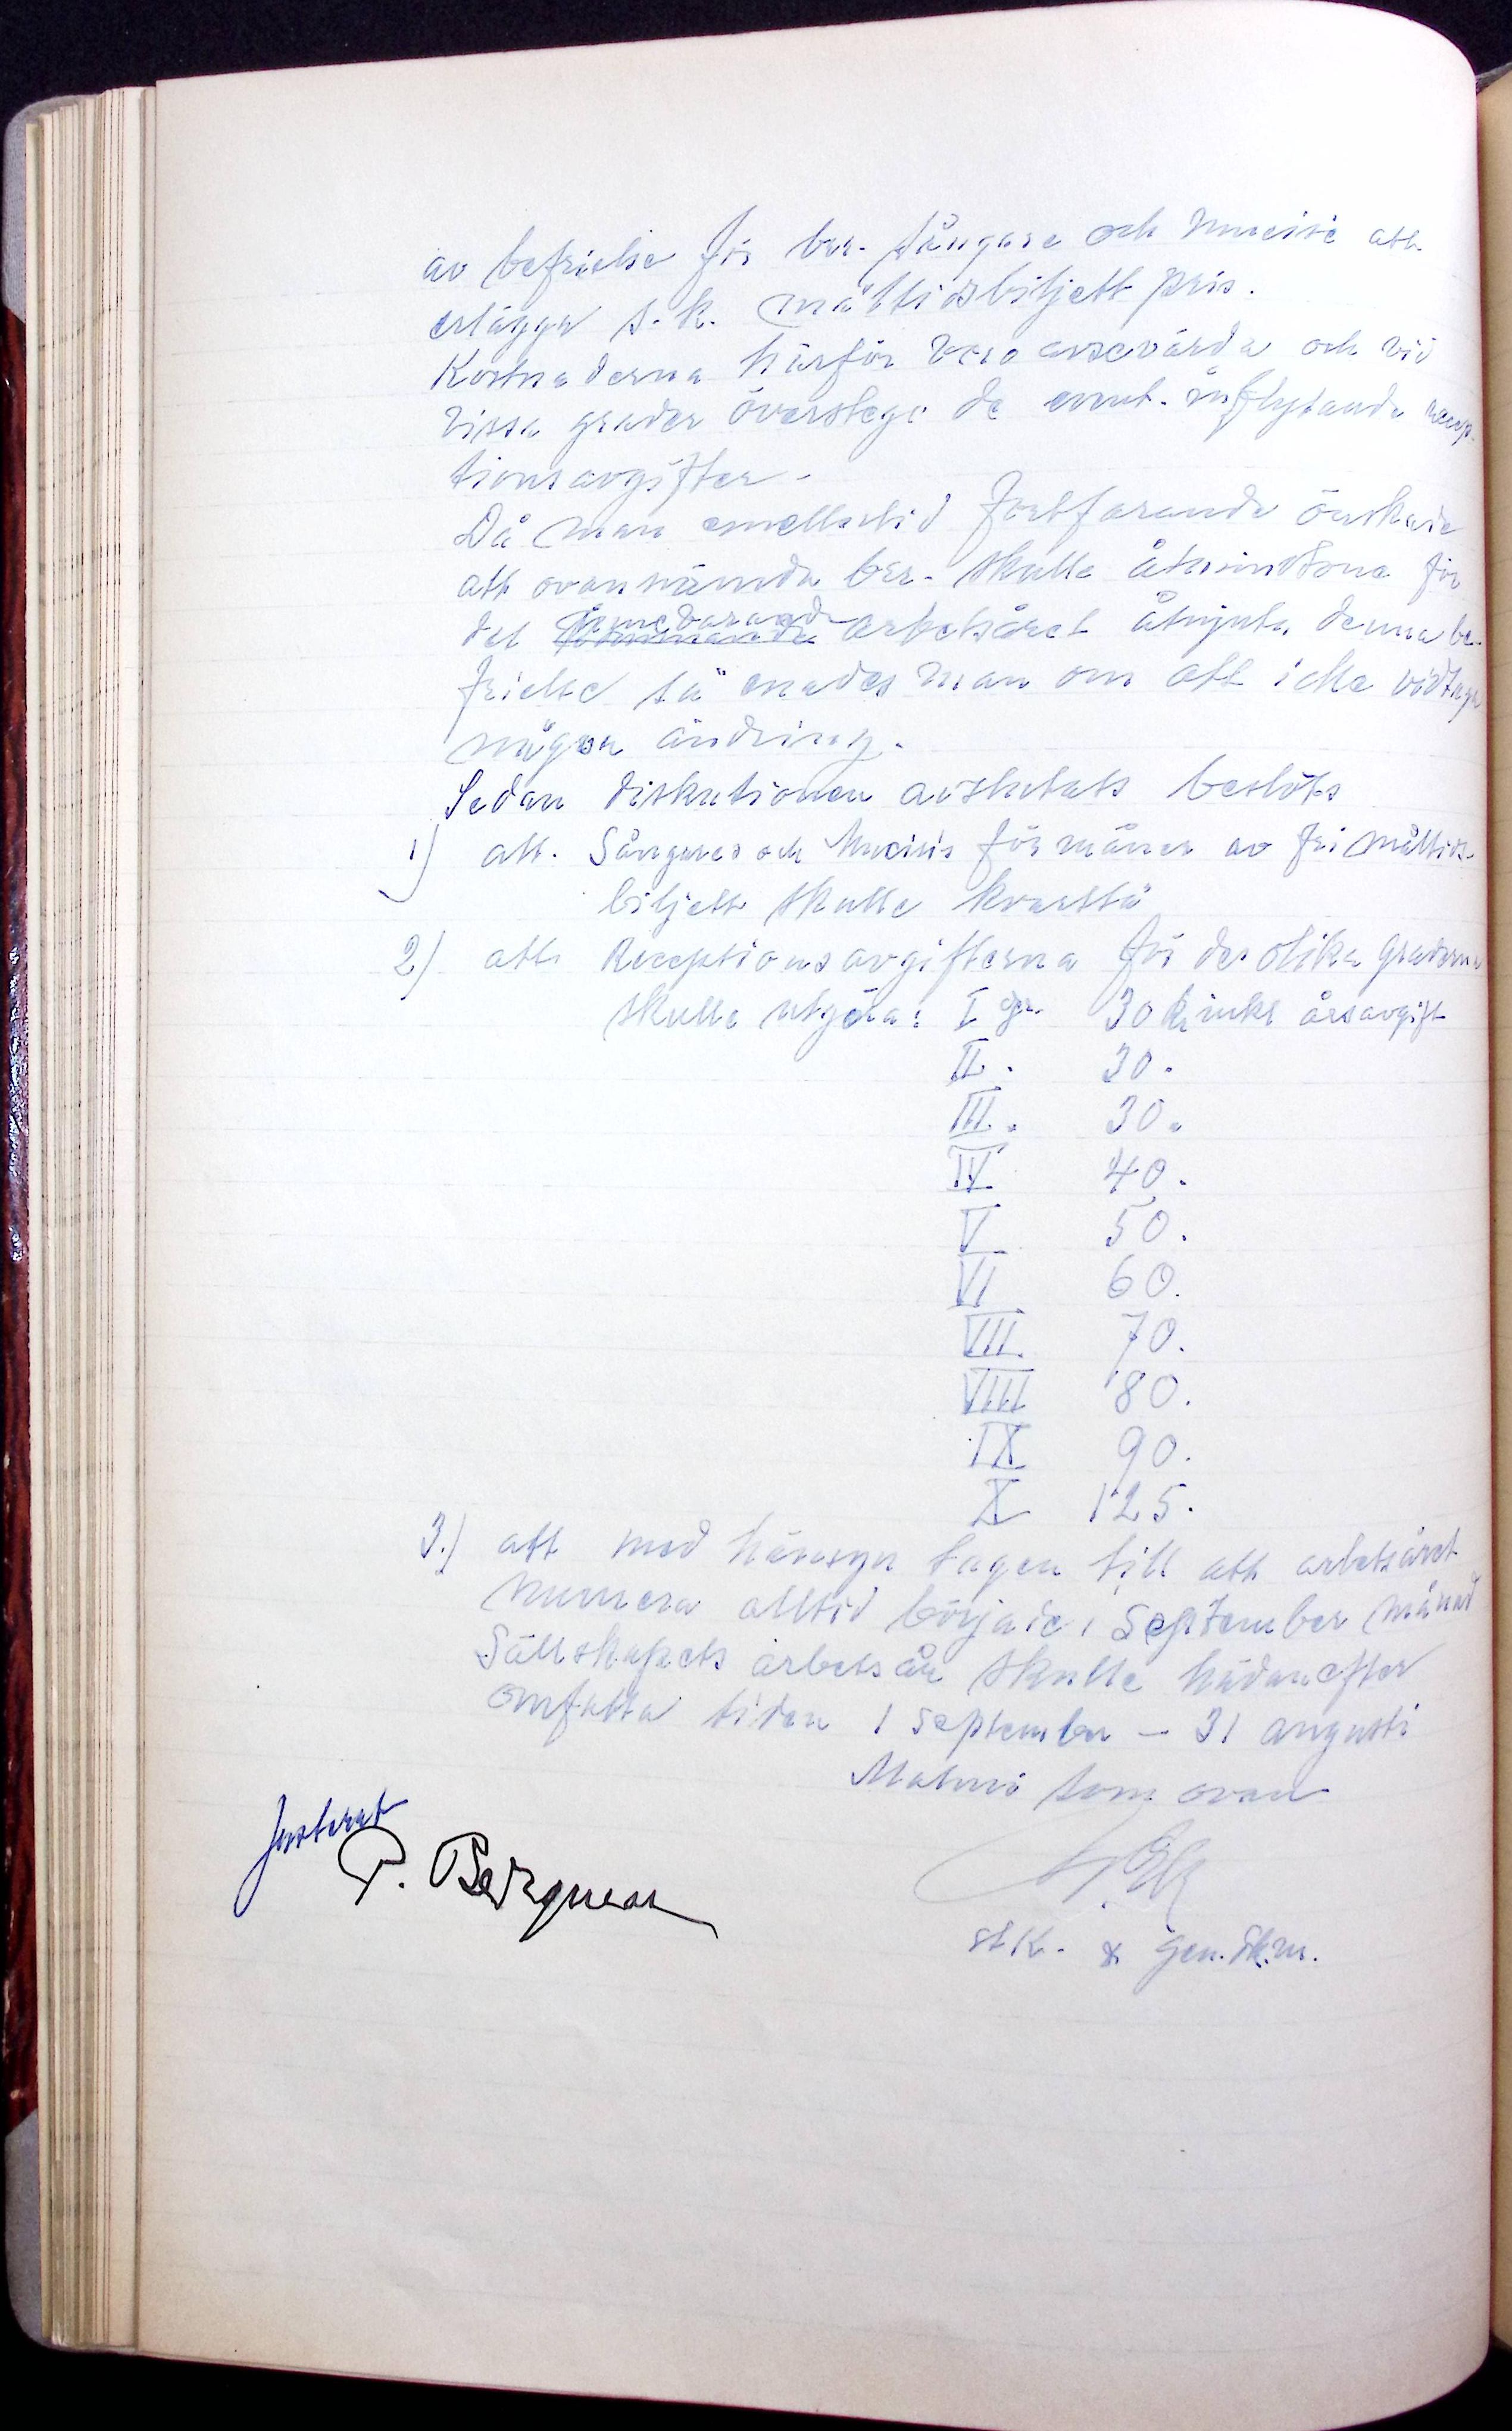 av befrielse för br. sångare och musici att
erlägga s.k. måltidsbiljett pris.
Kostnaderna härför voro avsevärda och vid
vissa grader överstego de event. inflytande recep-
tionsavgifter.
Då man emellertid fortfarande önskade
att ovannämnda brr. skulle åtminstone för
det innevarande arbetsåret åtnjuta denna be-
frielse så enades man om att icke vidtaga
någon ändring.
Sedan diskutionen avslutats beslöts
1) att Sångares och Musicis förmåner av fri måltids-
biljett skulle kvarstå
2) att Receptionsavgifterna för de olika graderna
skulle utgöra: I gr. 30 kr inkl årsavgift
II. 30.
III. 30.
IV 40.
V 50.
VI 60.
VII. 70.
VIII 80.
IX 90.
X 125.
3.) att med hänsyn tagen till att arbetsåret
numera alltid började i September månad
Sällskapets arbetsår skulle hädanefter
omfatta tiden 1 september – 31 augusti
Malmö som ovan
Justerat
P. Bergman
st K. & Gen. Sk.m.